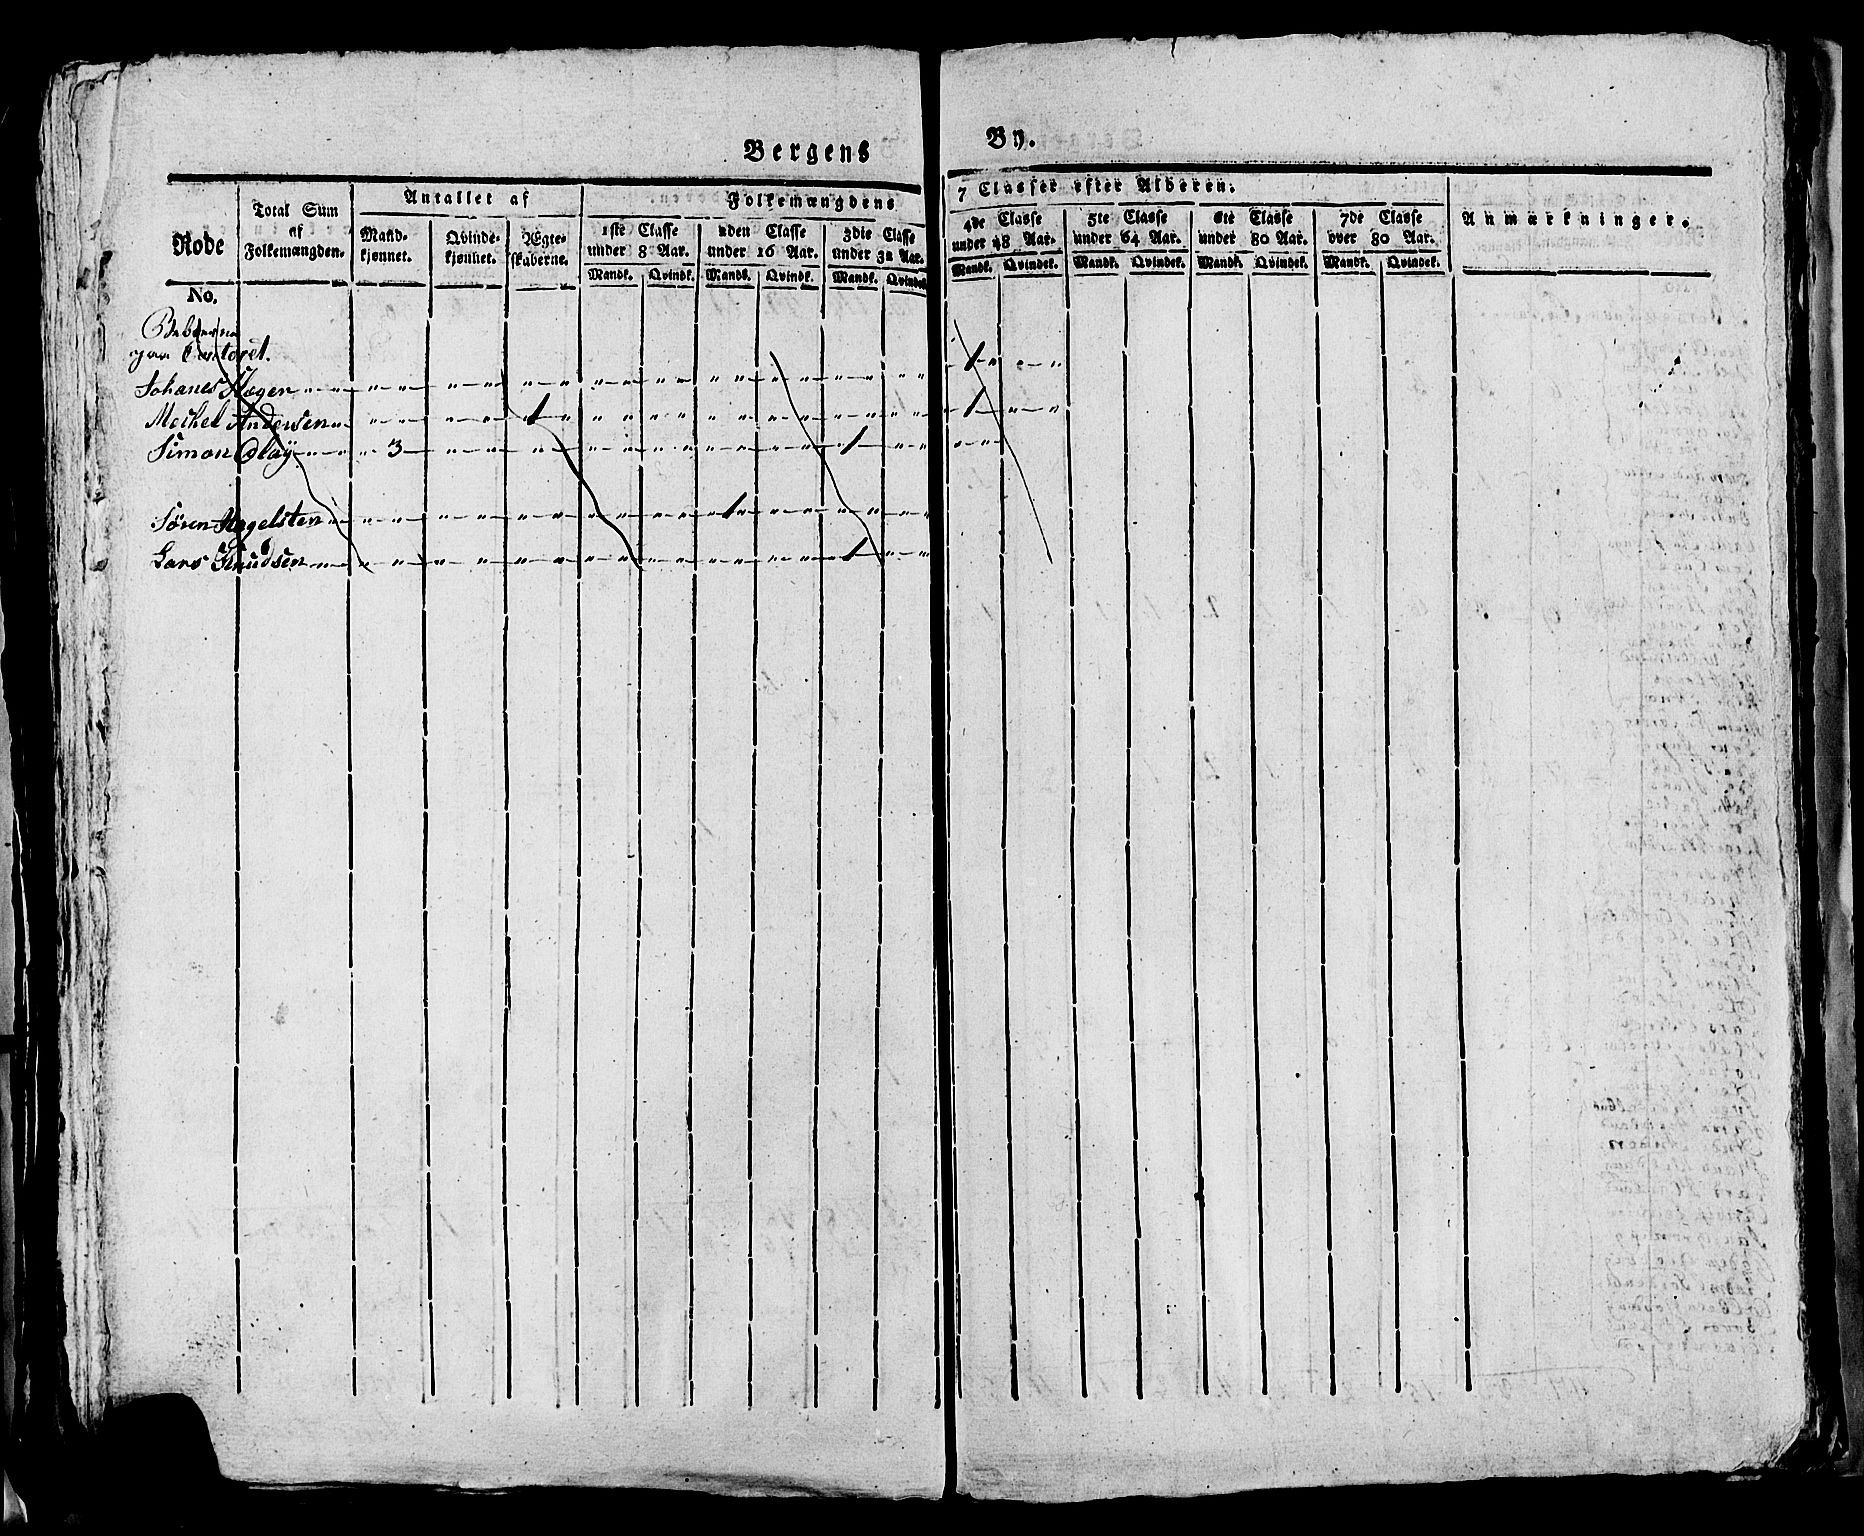 Bergens By.
Rode
No.
Total Sum
af
Folkemængden.
Antallet af
Mand-
kjønnet.
Qvinde-
kjønnet.
Ægte-
skaberne.
Folkemængdens 7 Classer efter Alderen.
1ste Classe
under 8 Aar.
Mandk. Qvindk.
2den Classe
under 16 Aar.
Mandk. Qvindk.
3die Classe
under 32 Aar.
Mandk. Qvindek.
4de Classe
under 48 Aar.
Mandk. Qvindek.
5te Classe
under 64 Aar.
Mandk. Qvindek.
6te Classe
under 80 Aar.
Mandk. Qvindek.
7de Classe
over 80 Aar.
Mandk. Qvindek.
Anmærkninger.
paa Contoret. 1
Johanes Hagen
Mechel Andersen 1 1
Simon Olay 3 1
Søren Hagelsten 1
Lars Knudsen 1